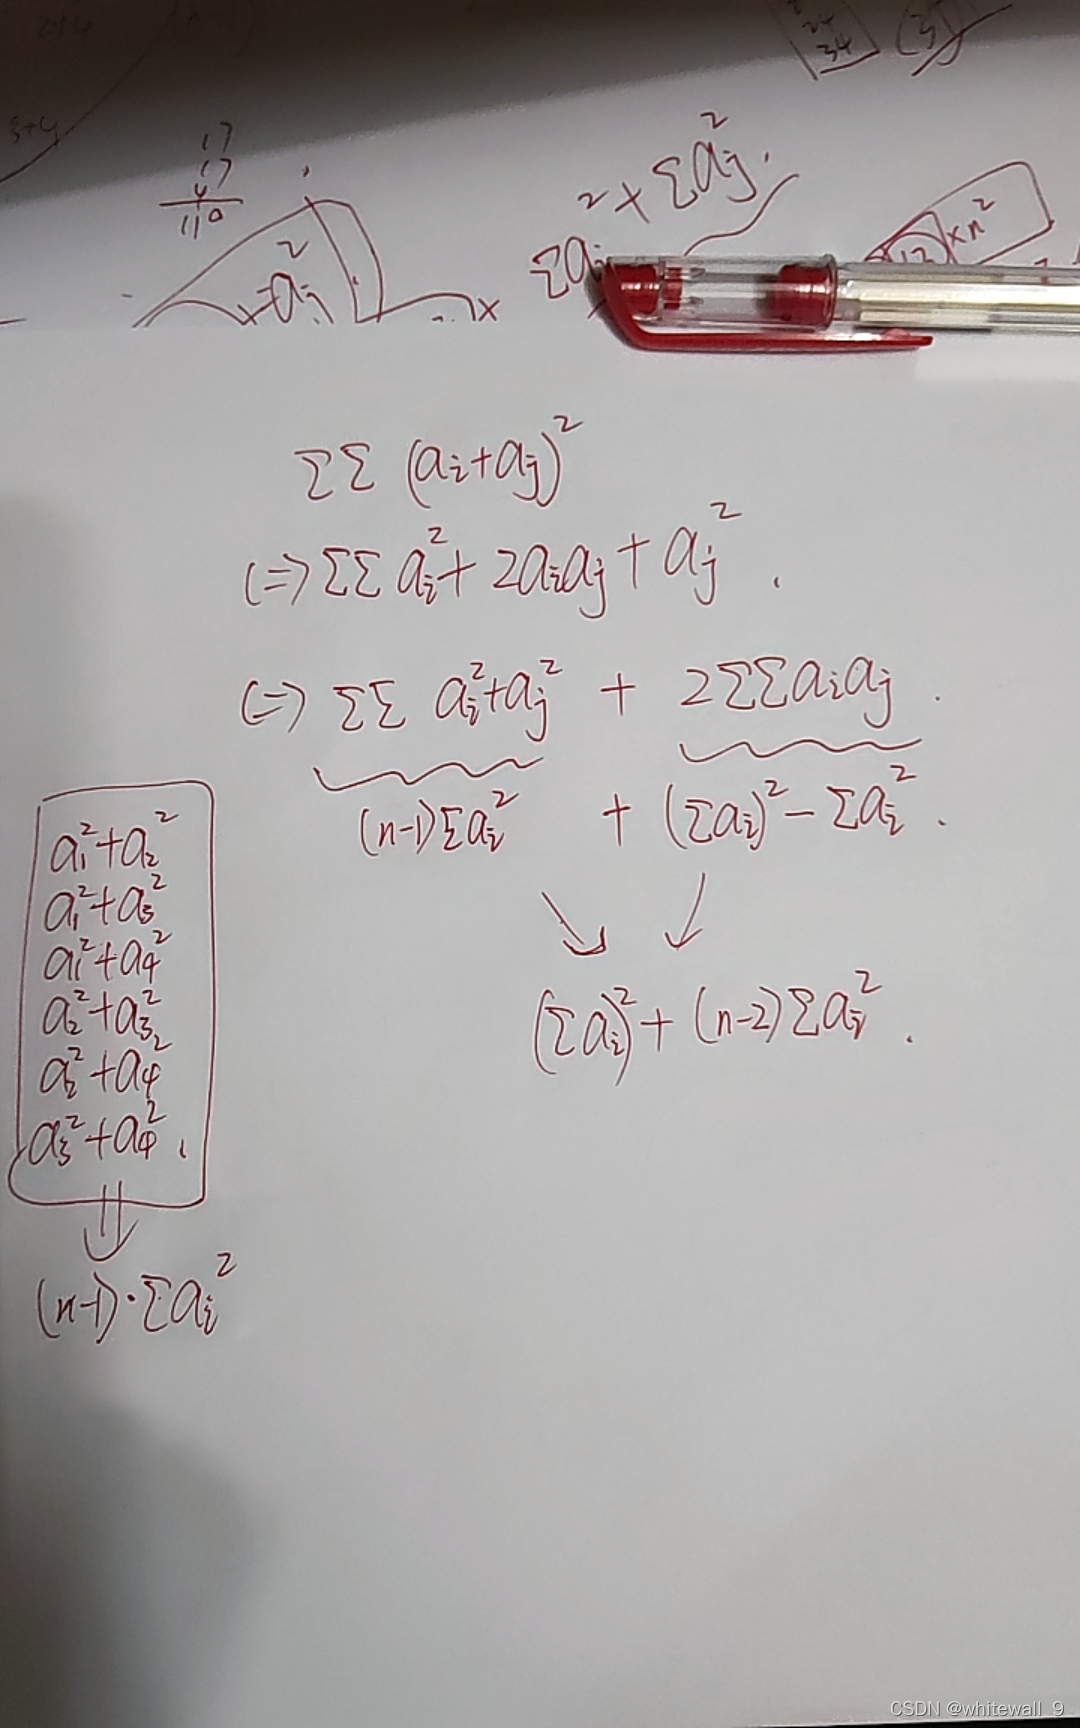 34
17
17
4
110
Σai² × Σaj².
×n²
ΣΣ (ai+aj)²
(=) ΣΣ ai² + 2aiaj + aj² .
(=) ΣΣ ai²+aj² + 2ΣΣaiaj .
(n-1)Σai² + (Σai)² - Σai² .
(Σai)² + (n-2)Σai² .
a1²+a2²
a1²+a3²
a1²+a4²
a2²+a3²
a2²+a4²
a3²+a4² .
(n-1)·Σai²
CSDN @whitewall_9